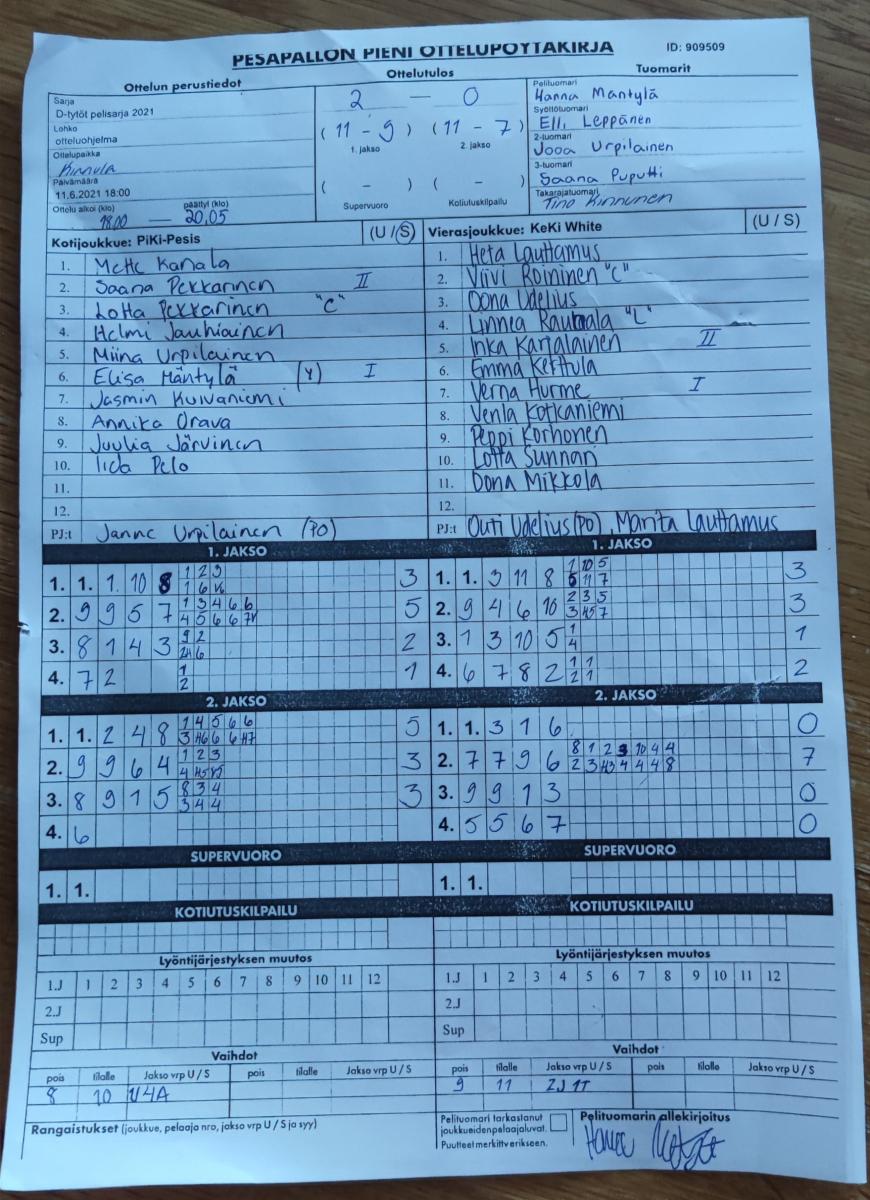 PESÄPALLON PIENI OTTELUPÖYTÄKIRJA ID: 909509
Ottelun perustiedot Ottelutulos Tuomarit
Sarja
D-tytöt pelisarja 2021
Lohko
otteluohjelma
Ottelupaikka
Kinnula
Päivämäärä
11.6.2021 18:00
Ottelu alkoi (klo) päättyi (klo)
18.00 — 20.05
2 — 0
(11 - 9) (11 - 7)
1. jakso 2. jakso
( - ) ( - )
Supervuoro Kotiutuskilpailu
Pelituomari
Hanna Mäntylä
Syöttötuomari
Elli Leppänen
2-tuomari
Jooa Urpilainen
3-tuomari
Saana Puputti
Takarajatuomari
Tino Kinnunen
Kotijoukkue: PiKi-Pesis (U / S)
1. Mette Kanala
2. Saana Pekkarinen II
3. Lotta Pekkarinen "C"
4. Helmi Jauhiainen
5. Miina Urpilainen
6. Elisa Mäntylä (Y) I
7. Jasmin Kuivaniemi
8. Annika Orava
9. Juulia Järvinen
10. Iida Pelo
11.
12.
PJ:t Janne Urpilainen (PO)
Vierasjoukkue: KeKi White (U / S)
1. Heta Lauttamus
2. Viivi Roininen "C"
3. Oona Udelius
4. Linnea "L"
5. Inka Karjalainen II
6. Emma Kerttula
7. Verna Hurme I
8. Venla Kotkaniemi
9. Peppi Korhonen
10. Lotta Sunnari
11. Oona Mikkola
12.
PJ:t Outi Udelius (PO), Marita Lauttamus
1. JAKSO 1. JAKSO
1. 1. 1 10 8 1 2 3 3
1 6
2. 9 9 5 7 1 3 4 6 6 5
4 5 6 6
3. 8 1 4 3 9 2 2
6
4. 7 2 1 1
2
1. 1. 3 11 8 1 10 5 3
11 7
2. 9 4 6 10 2 3 5 3
3 7
3. 1 3 10 5 1 1
4
4. 6 7 8 2 1 1 2
2 1
2. JAKSO 2. JAKSO
1. 1. 2 4 8 1 4 5 6 6 5
3 6 6
2. 9 9 6 4 1 2 3 3
4
3. 8 9 1 5 8 3 4 3
3 4 4
4. 6
1. 1. 3 1 6 0
2. 7 7 9 6 8 1 2 3 10 4 4 7
2 3 4 4 4 8
3. 9 9 1 3 0
4. 5 5 6 7 0
SUPERVUORO SUPERVUORO
1. 1. 1. 1.
KOTIUTUSKILPAILU KOTIUTUSKILPAILU
Lyöntijärjestyksen muutos Lyöntijärjestyksen muutos
1.J 1 2 3 4 5 6 7 8 9 10 11 12 1.J 1 2 3 4 5 6 7 8 9 10 11 12
2.J 2.J
Sup Sup
Vaihdot Vaihdot
pois tilalle Jakso vrp U / S pois tilalle Jakso vrp U / S pois tilalle Jakso vrp U / S pois tilalle Jakso vrp U / S
8 10 9 11 2J 1T
Rangaistukset (joukkue, pelaaja nro, jakso vrp U / S ja syy)
Pelituomari tarkastanut
joukkueiden pelaajaluvat.
Puutteet merkitty erikseen.
Pelituomarin allekirjoitus